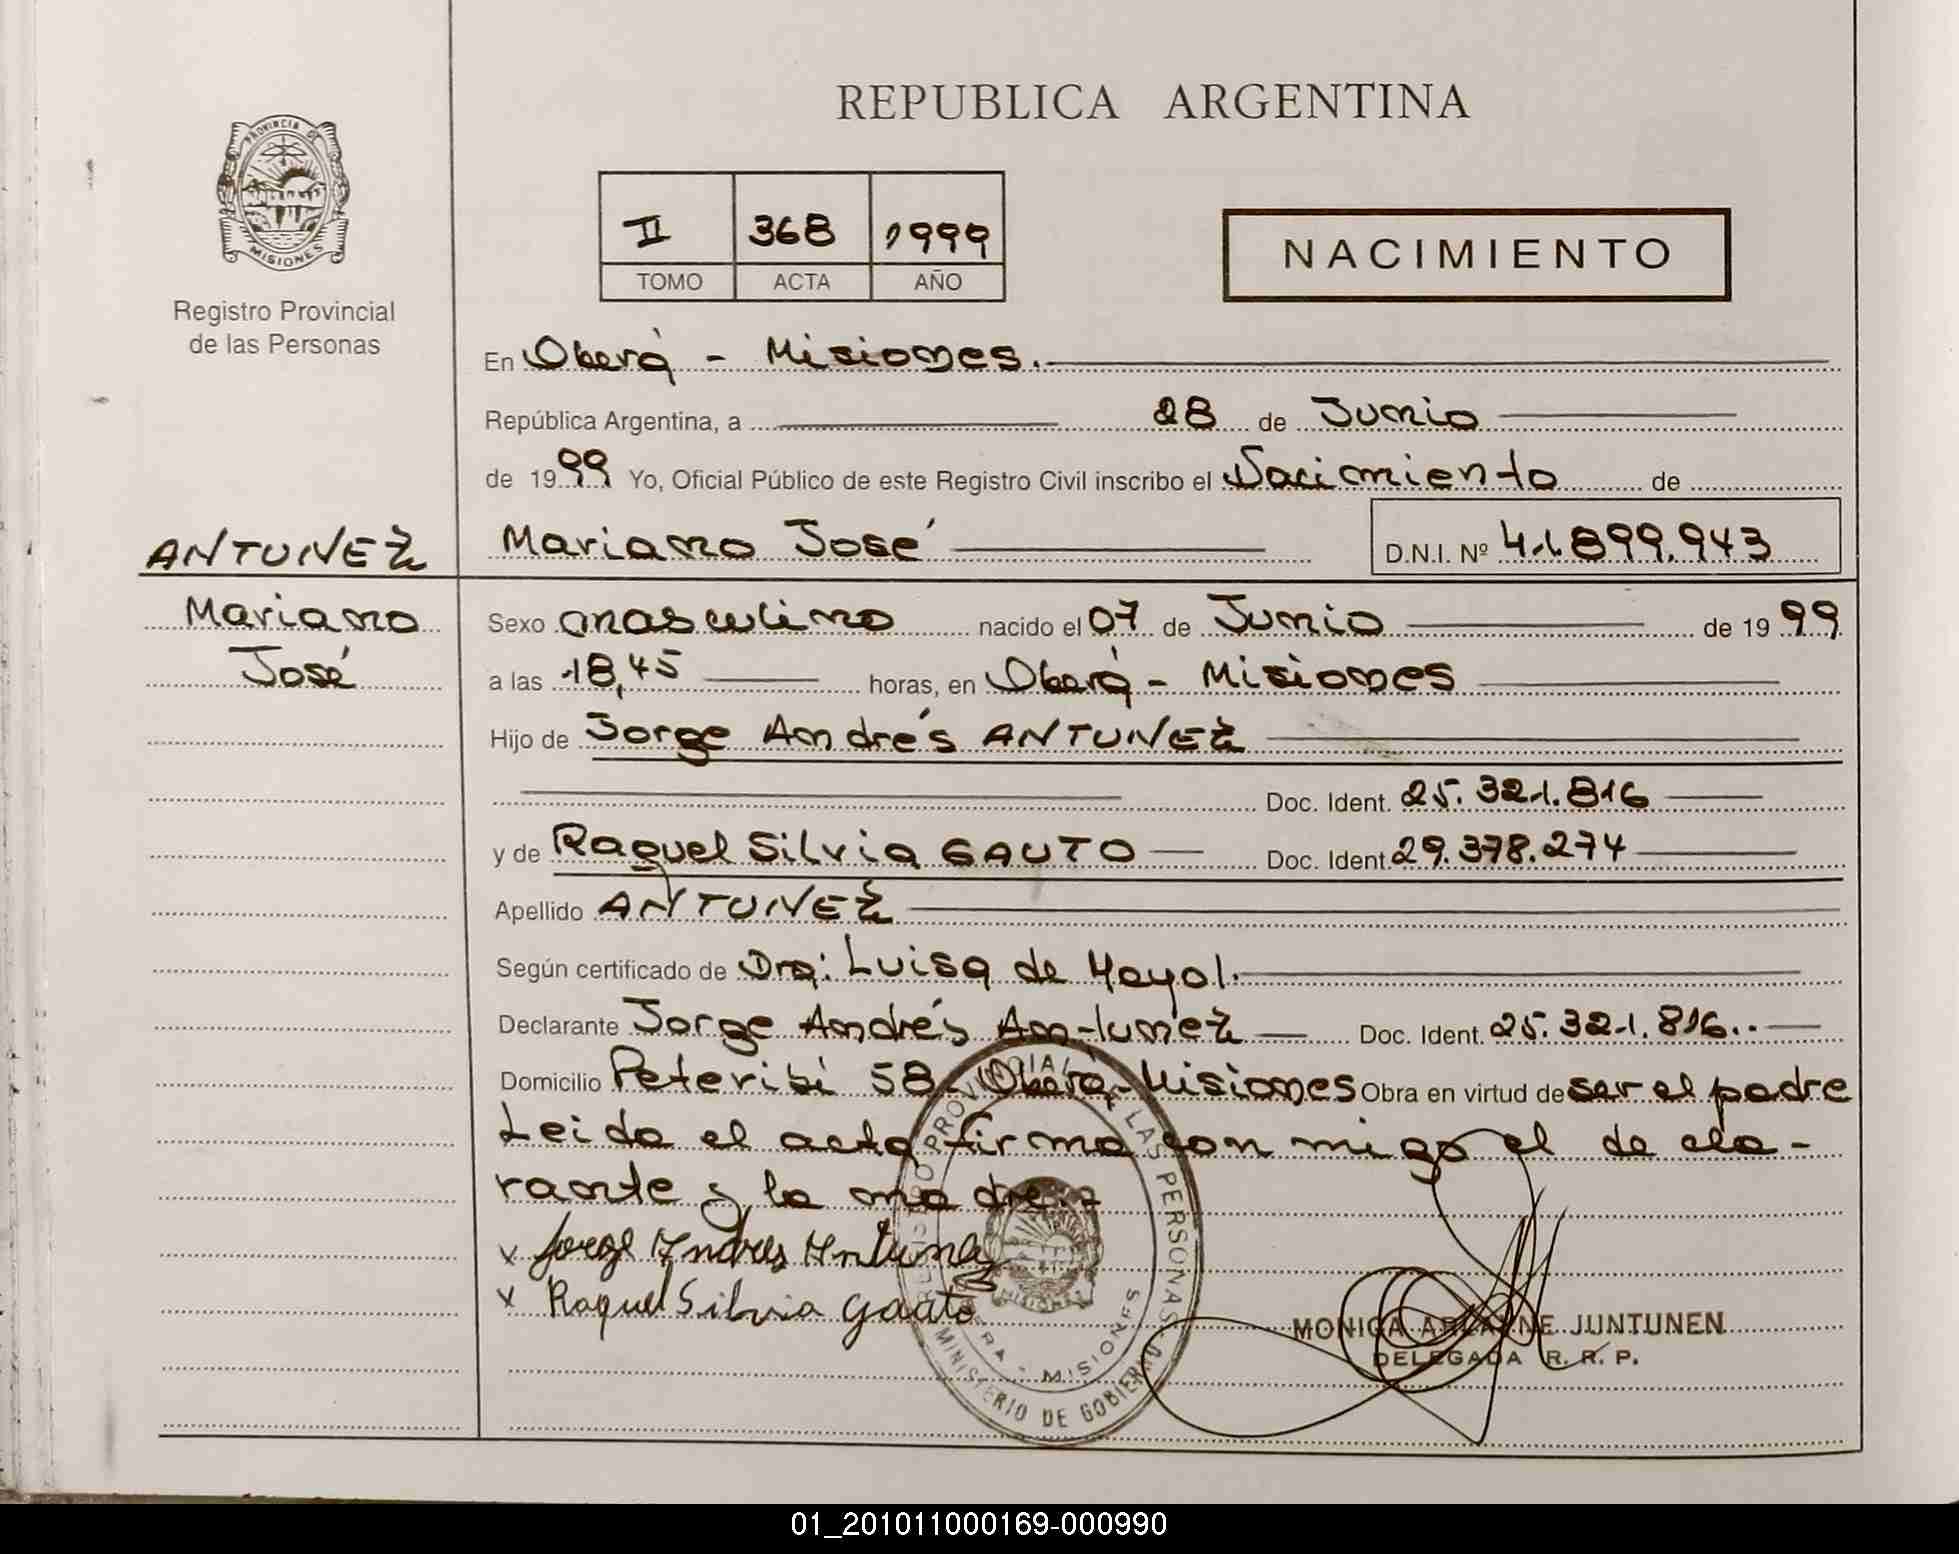 REPUBLICA ARGENTINA
PROVINCIA DE
MISIONES
Registro Provincial
de las Personas
II 368 1999
TOMO ACTA AÑO
NACIMIENTO
En Oberá - Misiones.
República Argentina, a 28 de Junio
de 1999 Yo, Oficial Público de este Registro Civil inscribo el Nacimiento de
ANTUNEZ
Mariano José
Mariano José D.N.I. Nº 41.899.943
Sexo masculino nacido el 07 de Junio de 1999
a las 18,45 horas, en Oberá - Misiones
Hijo de Jorge Andrés ANTUNEZ
Doc. Ident. 25.321.816
y de Raquel Silvia GAUTO Doc. Ident. 29.378.274
Apellido ANTUNEZ
Según certificado de Dra: Luisa de Mayol.
Declarante Jorge Andrés Antunez Doc. Ident. 25.321.816.
Domicilio Peteribí 58 - Oberá - Misiones Obra en virtud de ser el padre
Leida el acta firma con migo el decla-
rante y la madre.-
x Jorge Andres Antunez
x Raquel Silvia Gauto
REGISTRO PROVINCIAL DE LAS PERSONAS
MINISTERIO DE GOBIERNO
MISIONES
OBERA - MISIONES
MONICA ARIADNE JUNTUNEN
DELEGADA R. R. P.
01_201011000169-000990